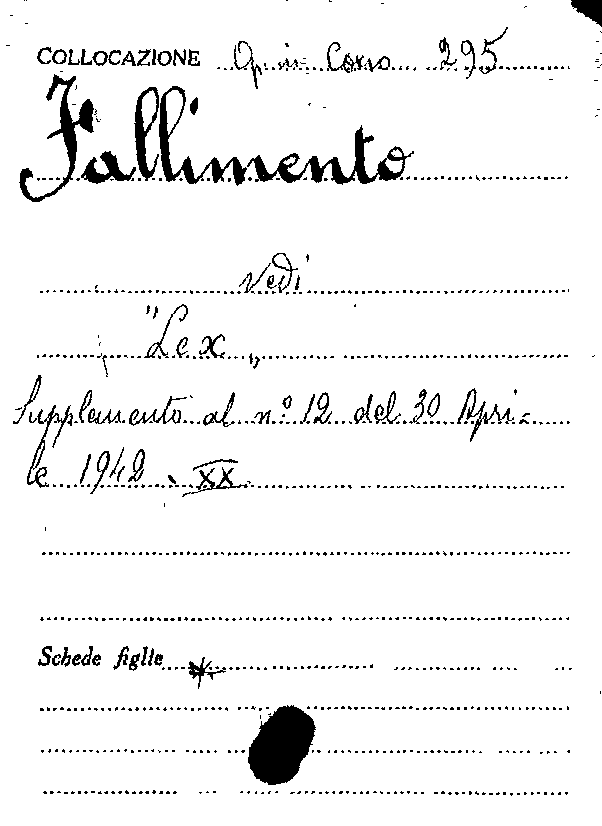 COLLOCAZIONE Op. in Corso 295
Fallimento
vedi
"Lex„
Supplemento al n.° 12 del 30 Apri-
le 1942. XX
Schede figlie